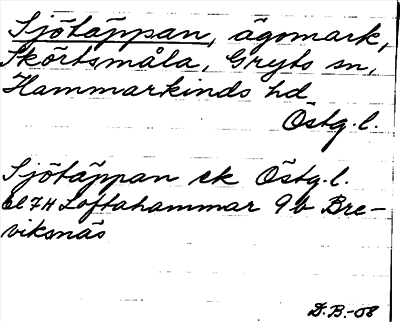 Sjötäppan, ägomark,
Skörtsmåla, Gryts sn,
Hammarkinds hd
Östg. l.
Sjötäppan ek Östg. l.
bl 7H Loftahammar 9b Bre-
viksnäs
D.B.-08